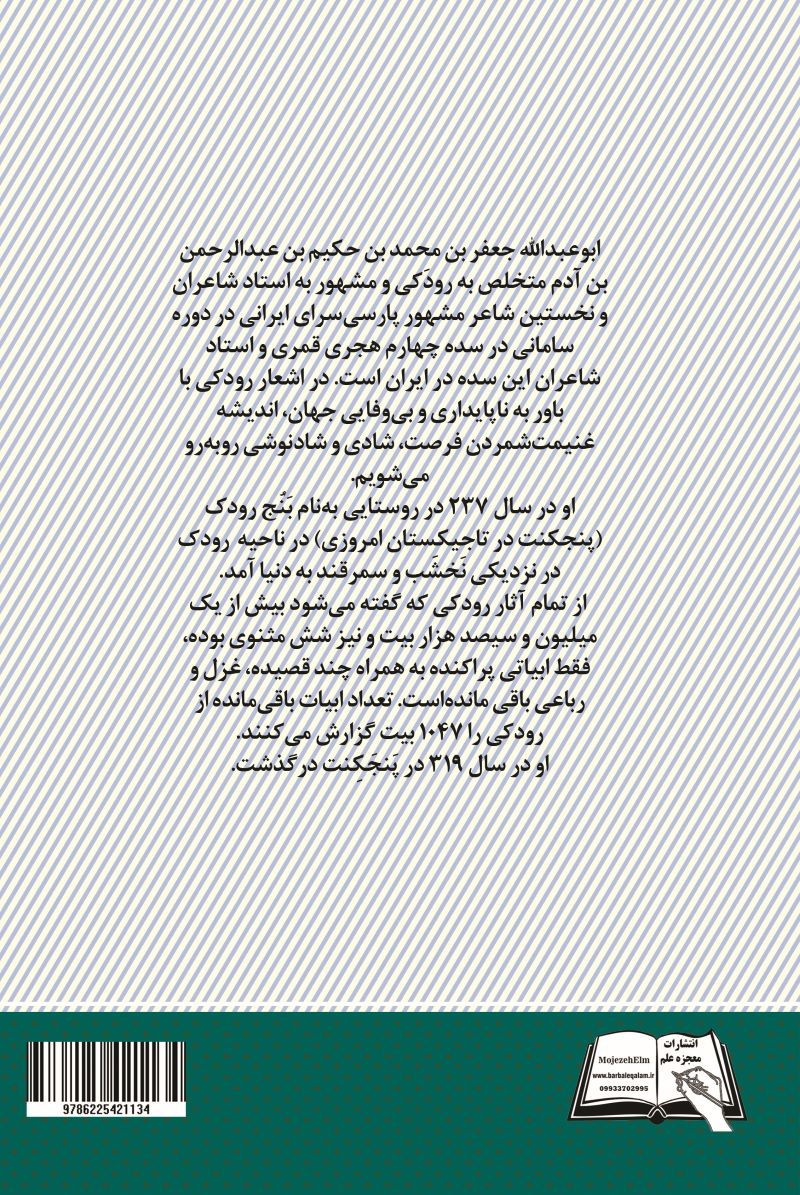 ابوعبدالله جعفر بن محمد بن حکیم بن عبدالرحمن
بن آدم متخلص به رودَکی و مشهور به استاد شاعران
و نخستین شاعر مشهور پارسی‌سرای ایرانی در دوره
سامانی در سده چهارم هجری قمری و استاد
شاعران این سده در ایران است. در اشعار رودکی با
باور به ناپایداری و بی‌وفایی جهان، اندیشه
غنیمت‌شمردن فرصت، شادی و شادنوشی روبه‌رو
می‌شویم.
او در سال ۲۳۷ در روستایی به‌نام بَنُج رودک
(پنجکنت در تاجیکستان امروزی) در ناحیه رودک
در نزدیکی نَخشَب و سمرقند به دنیا آمد.
از تمام آثار رودکی که گفته می‌شود بیش از یک
میلیون و سیصد هزار بیت و نیز شش مثنوی بوده،
فقط ابیاتی پراکنده به همراه چند قصیده، غزل و
رباعی باقی مانده‌است. تعداد ابیات باقی‌مانده از
رودکی را ۱۰۴۷ بیت گزارش می‌کنند.
او در سال ۳۱۹ در پَنجَکِنت درگذشت.
انتشارات
معجزه علم
MojezehElm
www.barbaleqalam.ir
09933702995
9786225421134